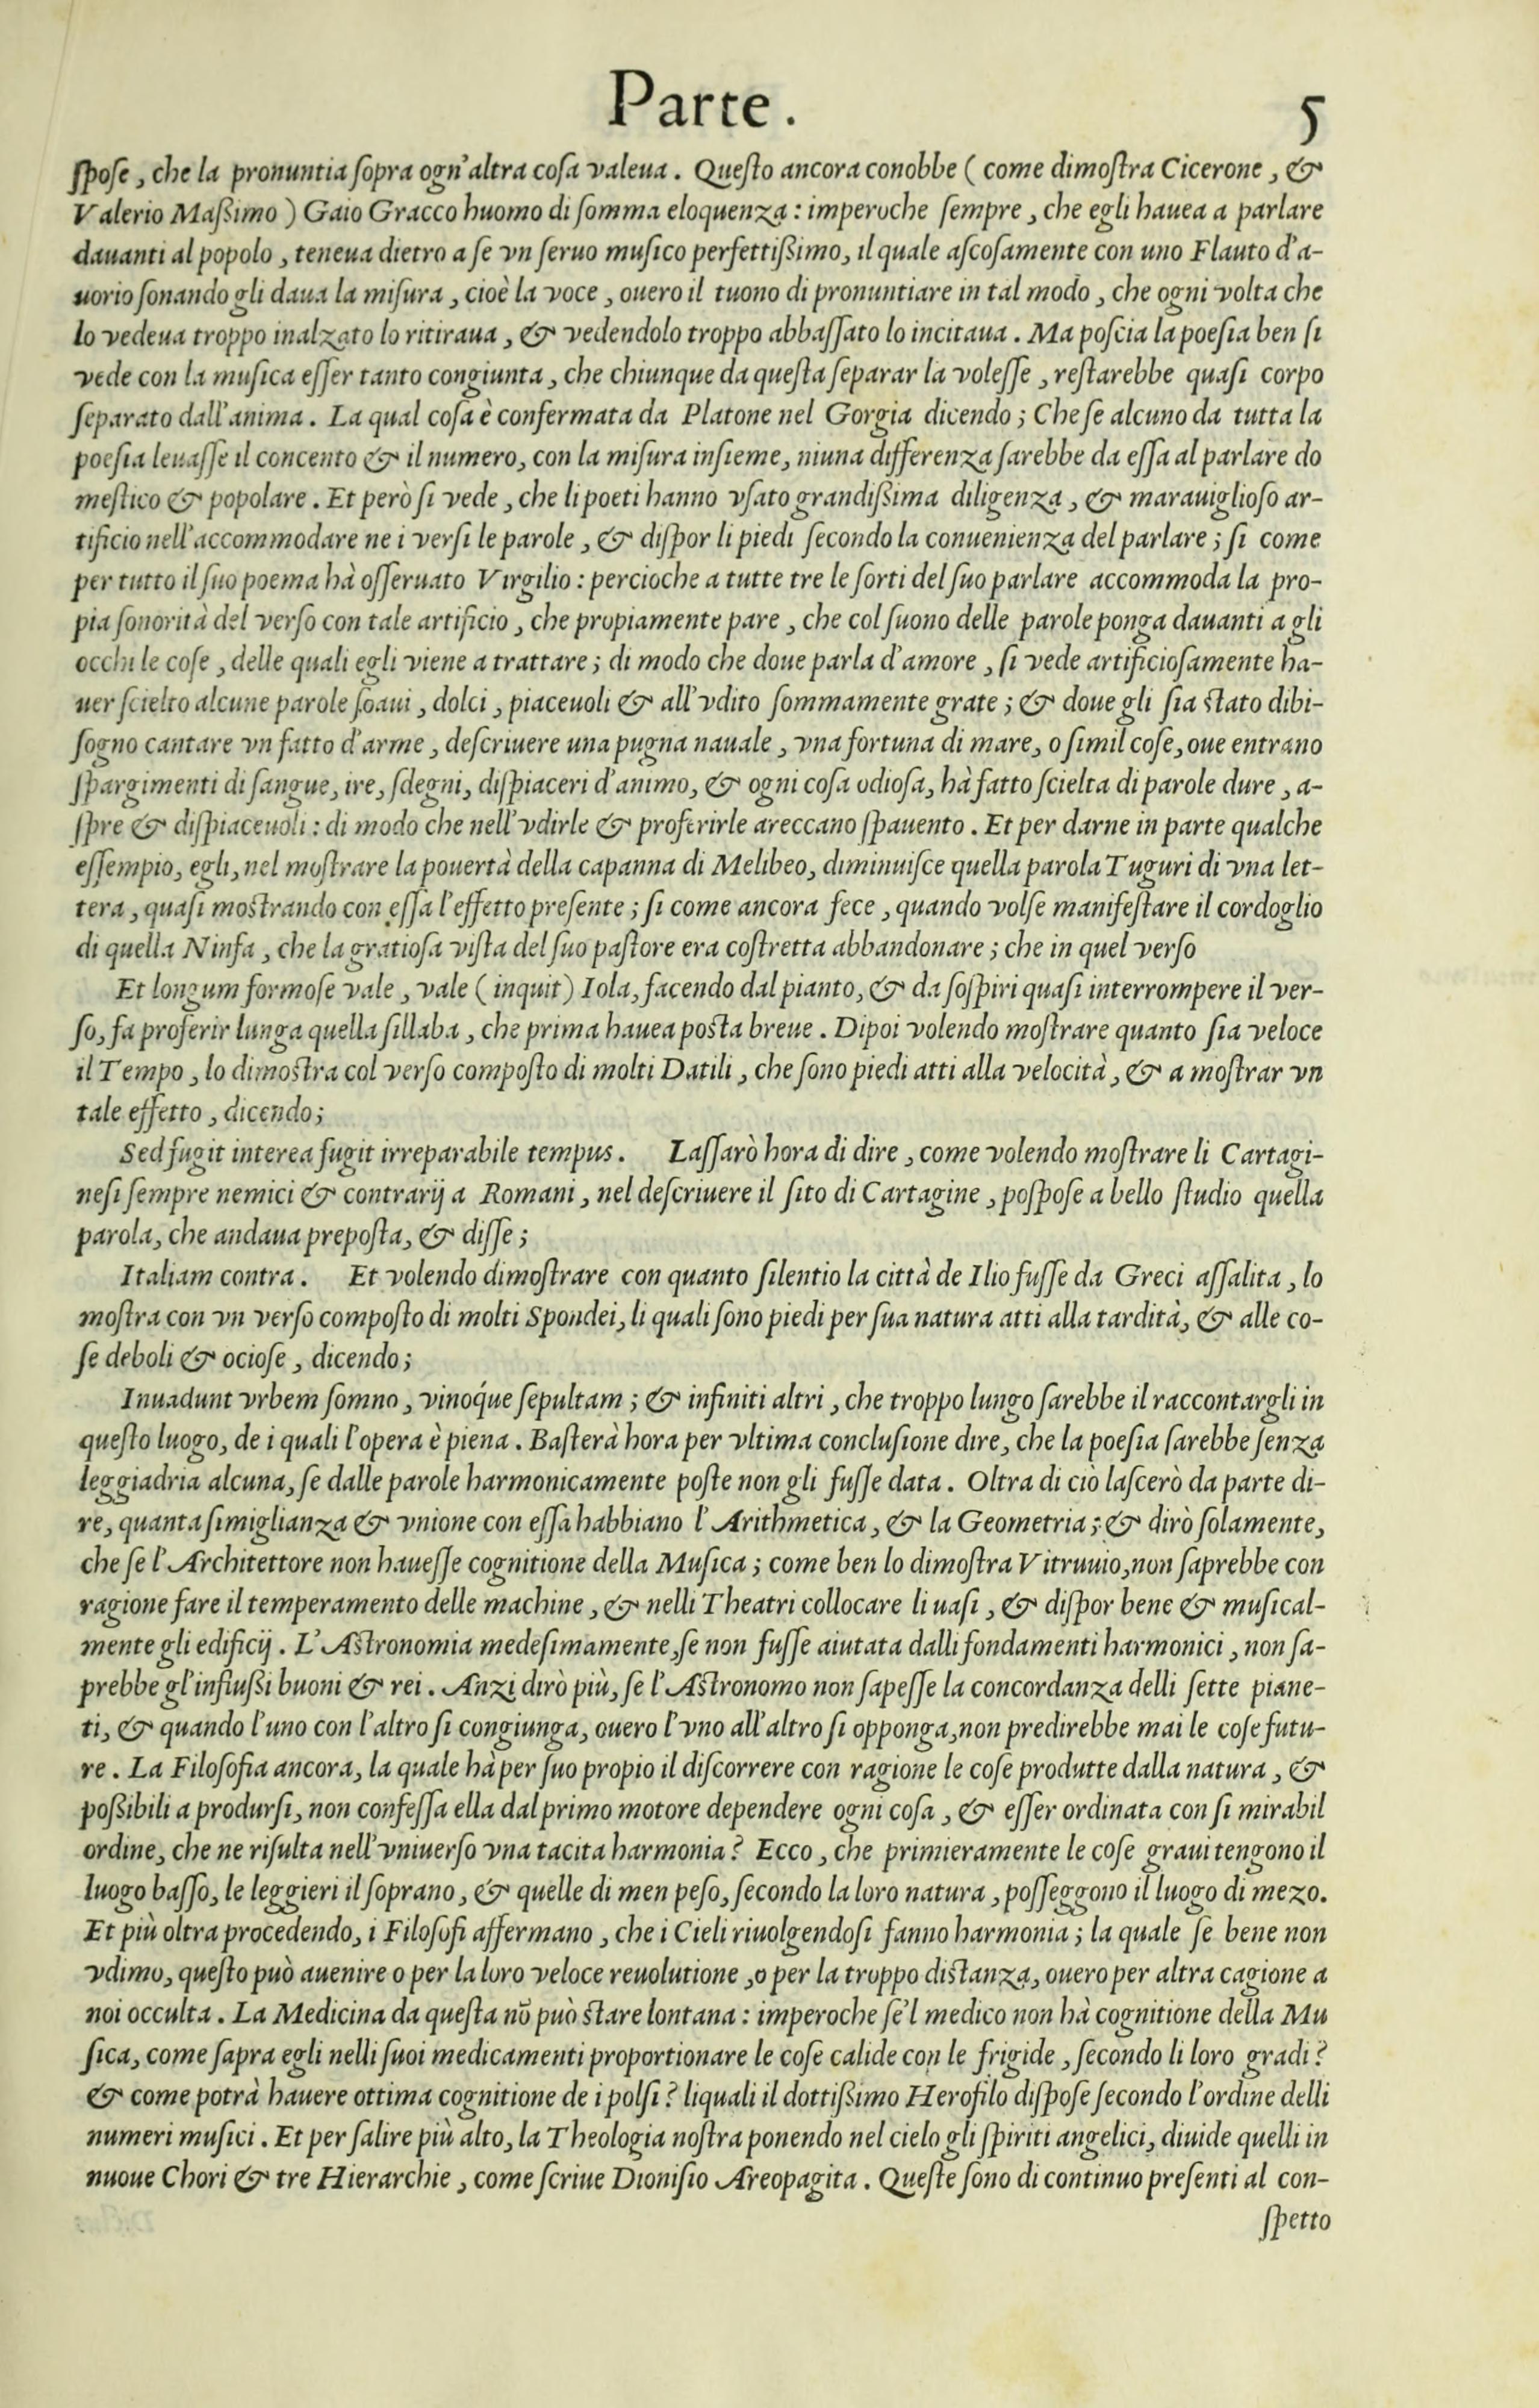 Parte.
5
ſpoſe, che la pronuntia ſopra ogn'altra coſa valeua. Queſto ancora conobbe (come dimoſtra Cicerone, &
Valerio Maßimo) Gaio Gracco huomo di ſomma eloquenza: imperoche ſempre, che egli hauea a parlare
dauanti al popolo, teneua dietro a ſe vn ſeruo muſico perfettißimo, il quale aſcoſamente con uno Flauto d'a-
uorio ſonando gli daua la miſura, cioè la voce, ouero il tuono di pronuntiare in tal modo, che ogni volta che
lo vedeua troppo inalzato lo ritiraua, & vedendolo troppo abbaſſato lo incitaua. Ma poſcia la poeſia ben ſi
vede con la muſica eſſer tanto congiunta, che chiunque da queſta ſeparar la voleſſe, reſtarebbe quaſi corpo
ſeparato dall'anima. La qual coſa è confermata da Platone nel Gorgia dicendo; Che ſe alcuno da tutta la
poeſia leuaſſe il concento & il numero, con la miſura inſieme, niuna differenza ſarebbe da eſſa al parlare do
meſtico & popolare. Et però ſi vede, che li poeti hanno vſato grandißima diligenza, & marauiglioſo ar-
tificio nell'accommodare ne i verſi le parole, & diſpor li piedi ſecondo la conuenienza del parlare; ſi come
per tutto il ſuo poema hà oſſeruato Virgilio: percioche a tutte tre le ſorti del ſuo parlare accommoda la pro-
pia ſonorità del verſo con tale artificio, che propiamente pare, che col ſuono delle parole ponga dauanti a gli
occhi le coſe, delle quali egli viene a trattare; di modo che doue parla d'amore, ſi vede artificioſamente ha-
uer ſcielto alcune parole ſoaui, dolci, piaceuoli & all'vdito ſommamente grate; & doue gli ſia ſtato dibi-
ſogno cantare vn fatto d'arme, deſcriuere una pugna nauale, vna fortuna di mare, o ſimil coſe, oue entrano
ſpargimenti di ſangue, ire, ſdegni, diſpiaceri d'animo, & ogni coſa odioſa, hà fatto ſcielta di parole dure, a-
ſpre & diſpiaceuoli: di modo che nell'vdirle & proferirle areccano ſpauento. Et per darne in parte qualche
eſſempio, egli, nel moſtrare la pouertà della capanna di Melibeo, diminuiſce quella parola Tuguri di vna let-
tera, quaſi moſtrando con eſſa l'effetto preſente; ſi come ancora fece, quando volſe manifeſtare il cordoglio
di quella Ninfa, che la gratioſa viſta del ſuo paſtore era coſtretta abbandonare; che in quel verſo
Et longum formoſe vale, vale (inquit) Iola, facendo dal pianto, & da ſoſpiri quaſi interrompere il ver-
ſo, fa proferir lunga quella ſillaba, che prima hauea poſta breue. Dipoi volendo moſtrare quanto ſia veloce
il Tempo, lo dimoſtra col verſo compoſto di molti Datili, che ſono piedi atti alla velocità, & a moſtrar vn
tale effetto, dicendo;
Sed fugit interea fugit irreparabile tempus. Laſſarò hora di dire, come volendo moſtrare li Cartagi-
neſi ſempre nemici & contrarij a Romani, nel deſcriuere il ſito di Cartagine, poſpoſe a bello ſtudio quella
parola, che andaua prepoſta, & diſſe;
Italiam contra. Et volendo dimoſtrare con quanto ſilentio la città de Ilio fuſſe da Greci aſſalita, lo
moſtra con vn verſo compoſto di molti Spondei, li quali ſono piedi per ſua natura atti alla tardità, & alle co-
ſe deboli & ocioſe, dicendo;
Inuadunt vrbem ſomno, vinoq́ue ſepultam; & infiniti altri, che troppo lungo ſarebbe il raccontargli in
queſto luogo, de i quali l'opera è piena. Baſterà hora per vltima concluſione dire, che la poeſia ſarebbe ſenza
leggiadria alcuna, ſe dalle parole harmonicamente poſte non gli fuſſe data. Oltra di ciò laſcerò da parte di-
re, quanta ſimiglianza & vnione con eſſa habbiano l'Arithmetica, & la Geometria; & dirò ſolamente,
che ſe l'Architettore non haueſſe cognitione della Muſica; come ben lo dimoſtra Vitruuio, non ſaprebbe con
ragione fare il temperamento delle machine, & nelli Theatri collocare li uaſi, & diſpor bene & muſical-
mente gli edificij. L'Aſtronomia medeſimamente, ſe non fuſſe aiutata dalli fondamenti harmonici, non ſa-
prebbe gl'influßi buoni & rei. Anzi dirò più, ſe l'Aſtronomo non ſapeſſe la concordanza delli ſette piane-
ti, & quando l'uno con l'altro ſi congiunga, ouero l'vno all'altro ſi opponga, non predirebbe mai le coſe futu-
re. La Filoſofia ancora, la quale hà per ſuo propio il diſcorrere con ragione le coſe produtte dalla natura, &
poßibili a produrſi, non confeſſa ella dal primo motore dependere ogni coſa, & eſſer ordinata con ſi mirabil
ordine, che ne riſulta nell'vniuerſo vna tacita harmonia? Ecco, che primieramente le coſe graui tengono il
luogo baſſo, le leggieri il ſoprano, & quelle di men peſo, ſecondo la loro natura, poſſeggono il luogo di mezo.
Et più oltra procedendo, i Filoſofi affermano, che i Cieli riuolgendoſi fanno harmonia; la quale ſe bene non
vdimo, queſto può auenire o per la loro veloce reuolutione, o per la troppo diſtanza, ouero per altra cagione a
noi occulta. La Medicina da queſta nō può ſtare lontana: imperoche ſe'l medico non hà cognitione della Mu
ſica, come ſapra egli nelli ſuoi medicamenti proportionare le coſe calide con le frigide, ſecondo li loro gradi?
& come potrà hauere ottima cognitione de i polſi? liquali il dottißimo Herofilo diſpoſe ſecondo l'ordine delli
numeri muſici. Et per ſalire più alto, la Theologia noſtra ponendo nel cielo gli ſpiriti angelici, diuide quelli in
nuoue Chori & tre Hierarchie, come ſcriue Dioniſio Areopagita. Queſte ſono di continuo preſenti al con-
ſpetto